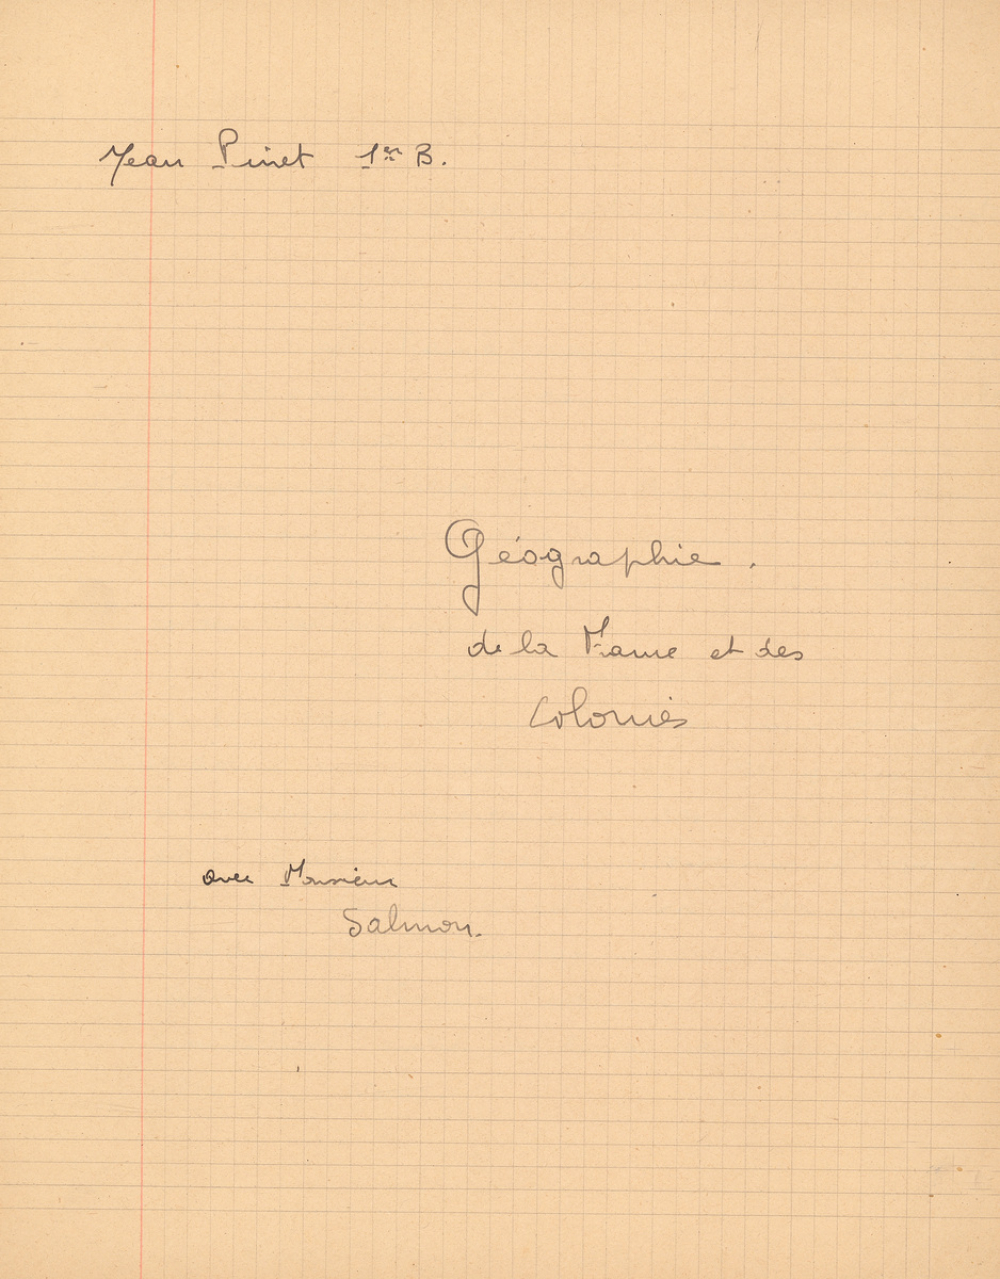 Jean Pinet 1ère B.
Géographie.
de la France et des
Colonies
avec Monsieur
Salmon.